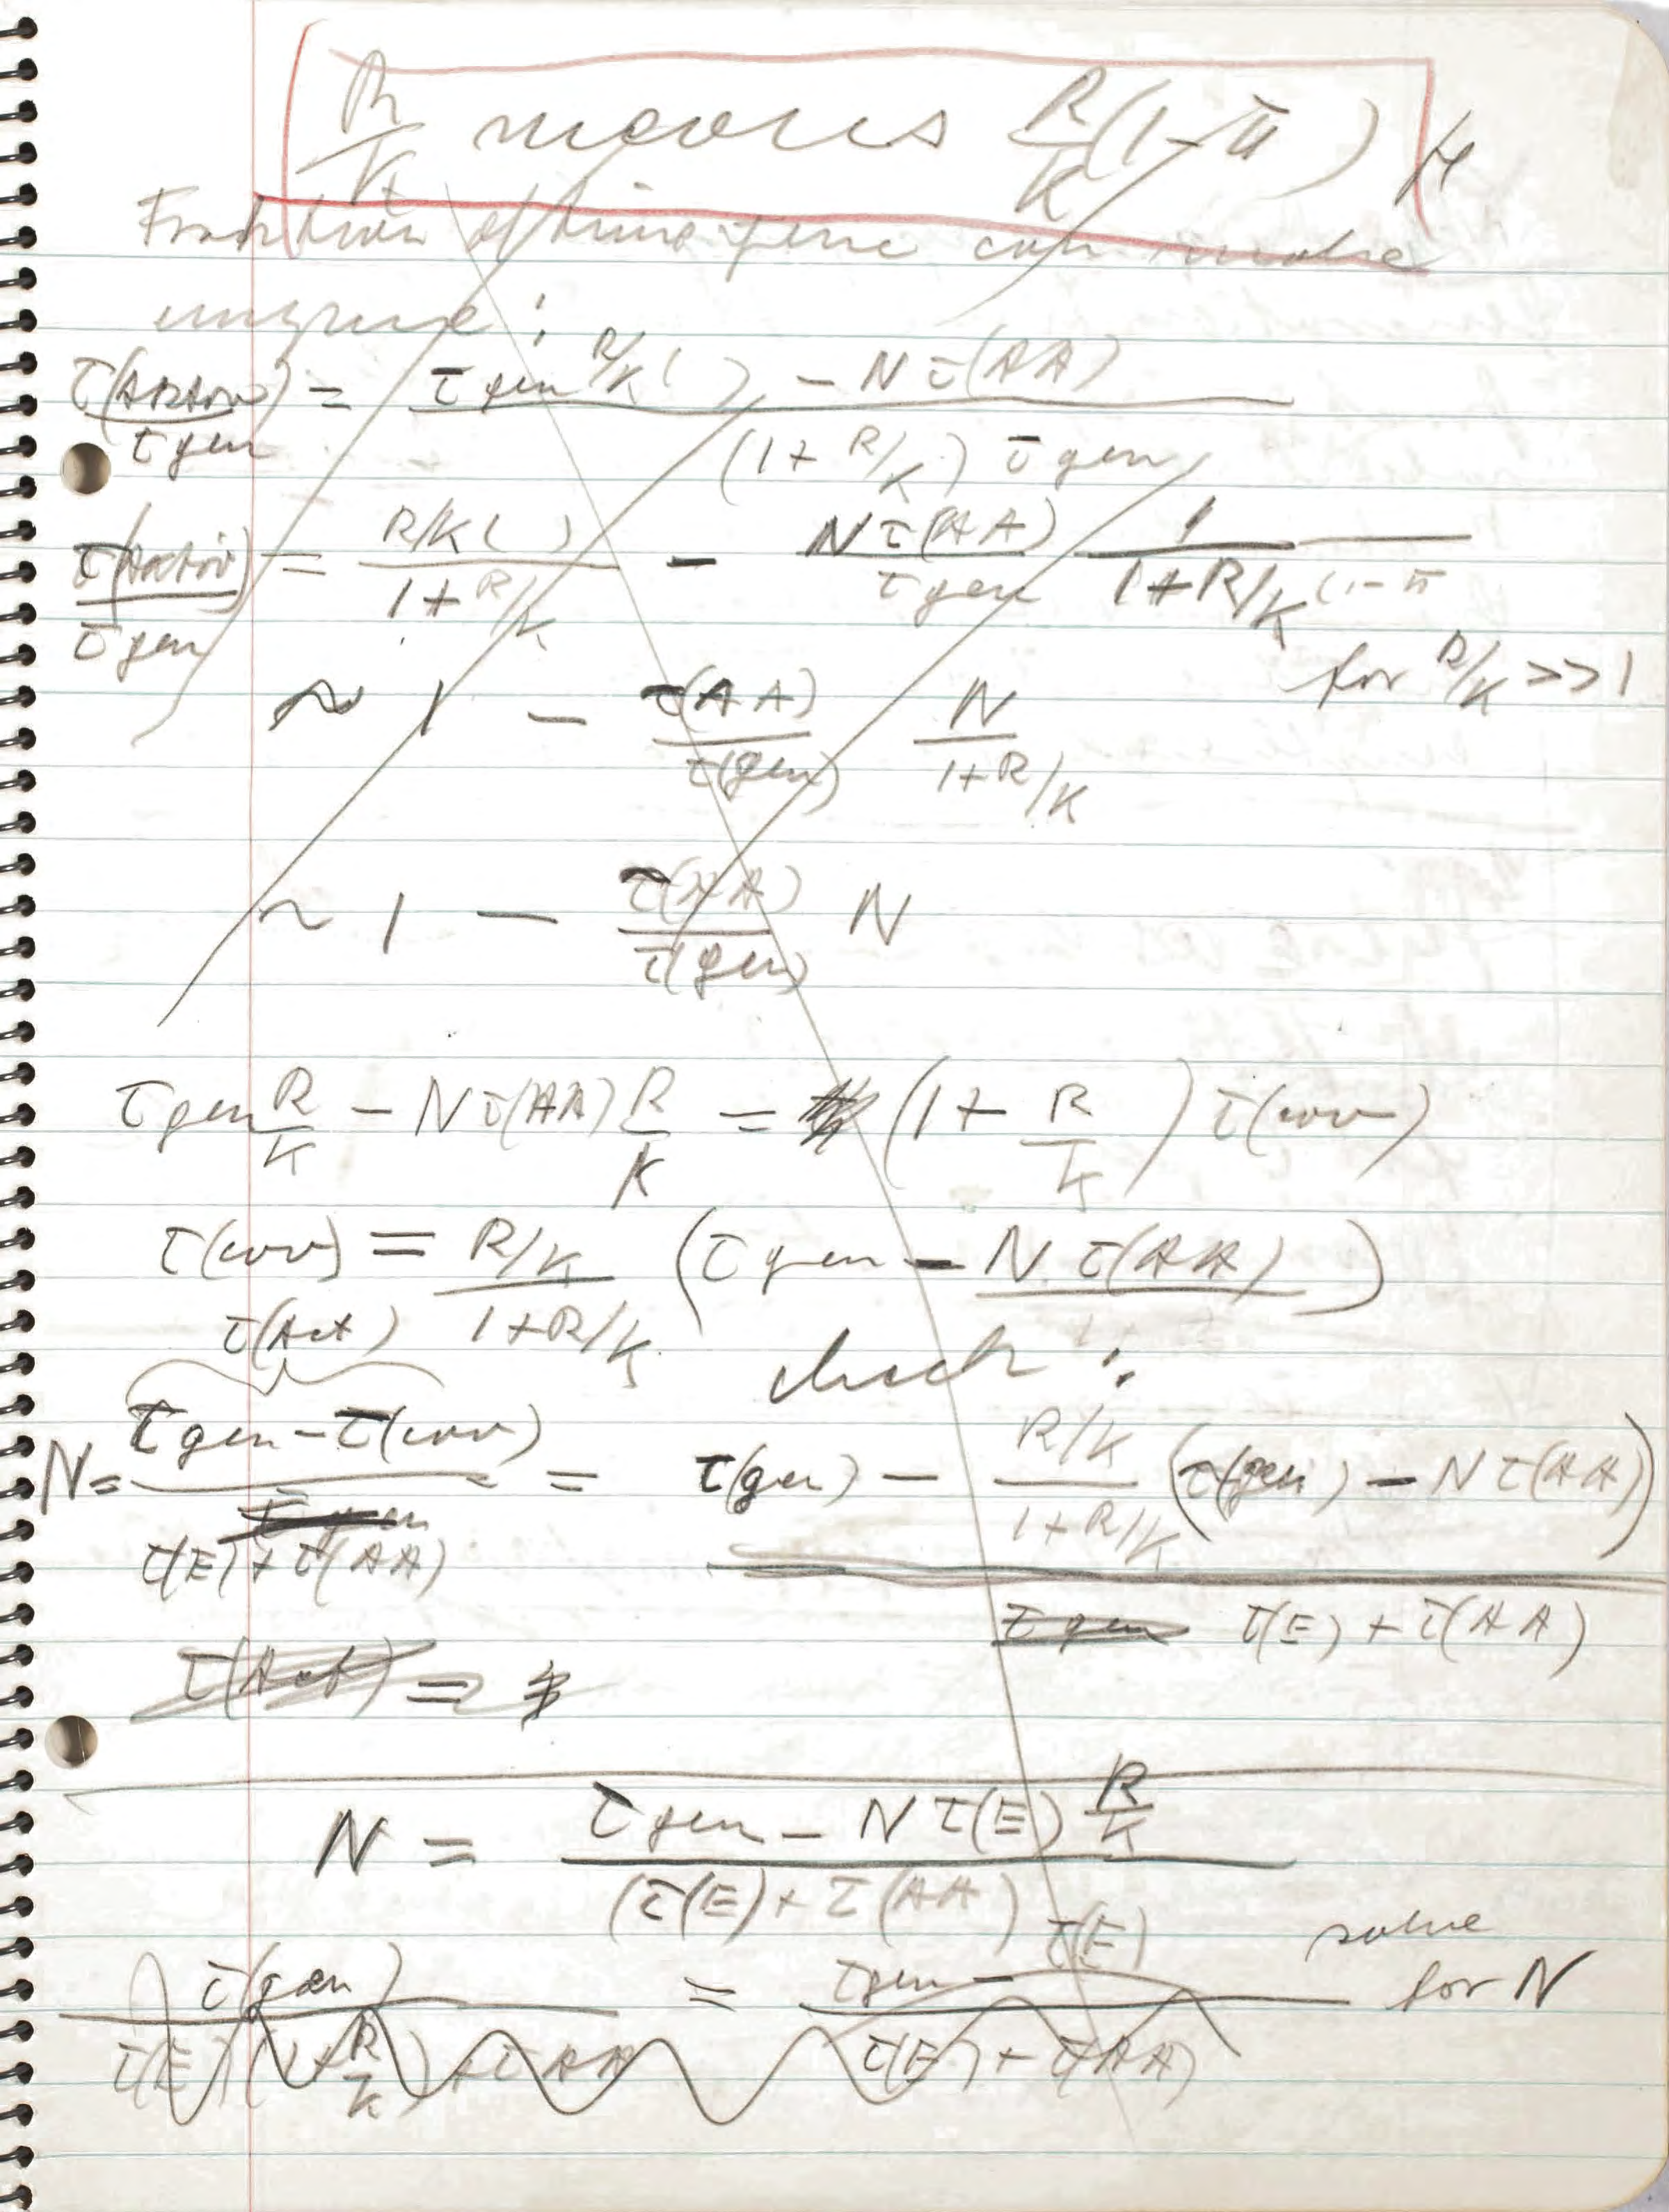 R/K means R/K (1-π)
Fraction of time gene can make
enzyme :
τ(Activ)/τgen = (τgen R/K ( ) - Nτ(AA)) / ((1+R/K) τgen)
τ(Activ)/τgen = R/K( )/(1+R/K) - Nτ(AA)/τgen 1/(1+R/K (1-π
for R/K >> 1
~ 1 - τ(AA)/τ(gen) N/(1+R/K)
~ 1 - τ(AA)/τ(gen) N
τgen R/K - Nτ(AA) R/K = (1 + R/K) τ(cov)
τ(cov) = (R/K)/(1+R/K) (τgen - Nτ(AA))
τ(Act)
check :
N = (τgen - τ(cov))/(τ(E)+τ(AA)) = (τ(gen) - (R/K)/(1+R/K) (τ(gen) - Nτ(AA)))/(τ(E)+τ(AA))
τ(Act) =
N = (τgen - Nτ(E) R/K)/(τ(E)+τ(AA))
solve
τ(gen)/(τ(E)(1+R/K)+τAA) = (τgen - τ(E))/(τ(E)+τ(AA)) for N